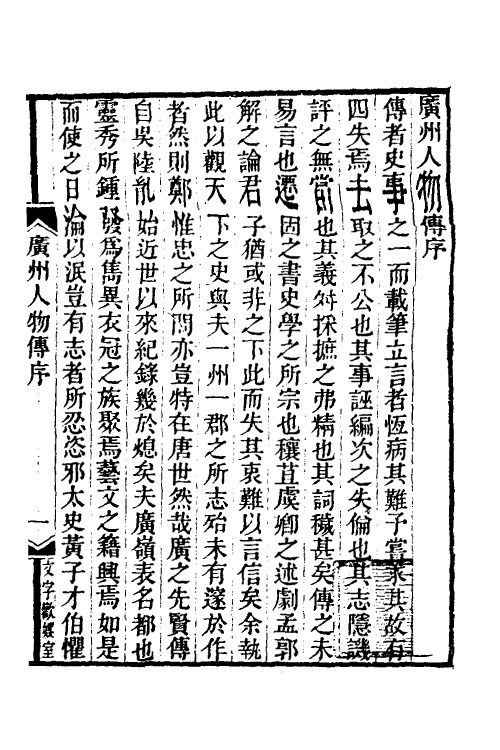 廣州人物傳序
傳者史事之一而載筆立言者恆病其難予嘗求其故有
四失焉去取之不公也其事誣編次之失倫也其志隱譏
評之無當也其義舛採摭之弗精也其詞穢甚矣傳之未
易言也遷固之書史學之所宗也穰苴虞卿之述劇孟郭
解之論君子猶或非之下此而失其衷難以言信矣余執
此以觀天下之史與夫一州一郡之所志殆未有邃於作
者然則鄭惟忠之所問亦豈特在唐世然哉廣之先賢傳
自吳陸胤始近世以來紀錄幾於熄矣夫廣嶺表名都也
靈秀所鍾發爲雋異衣冠之族聚焉藝文之籍興焉如是
而使之日淪以泯豈有志者所忍恣邪太史黃子才伯懼
廣州人物傳序
一
文字歡娛室